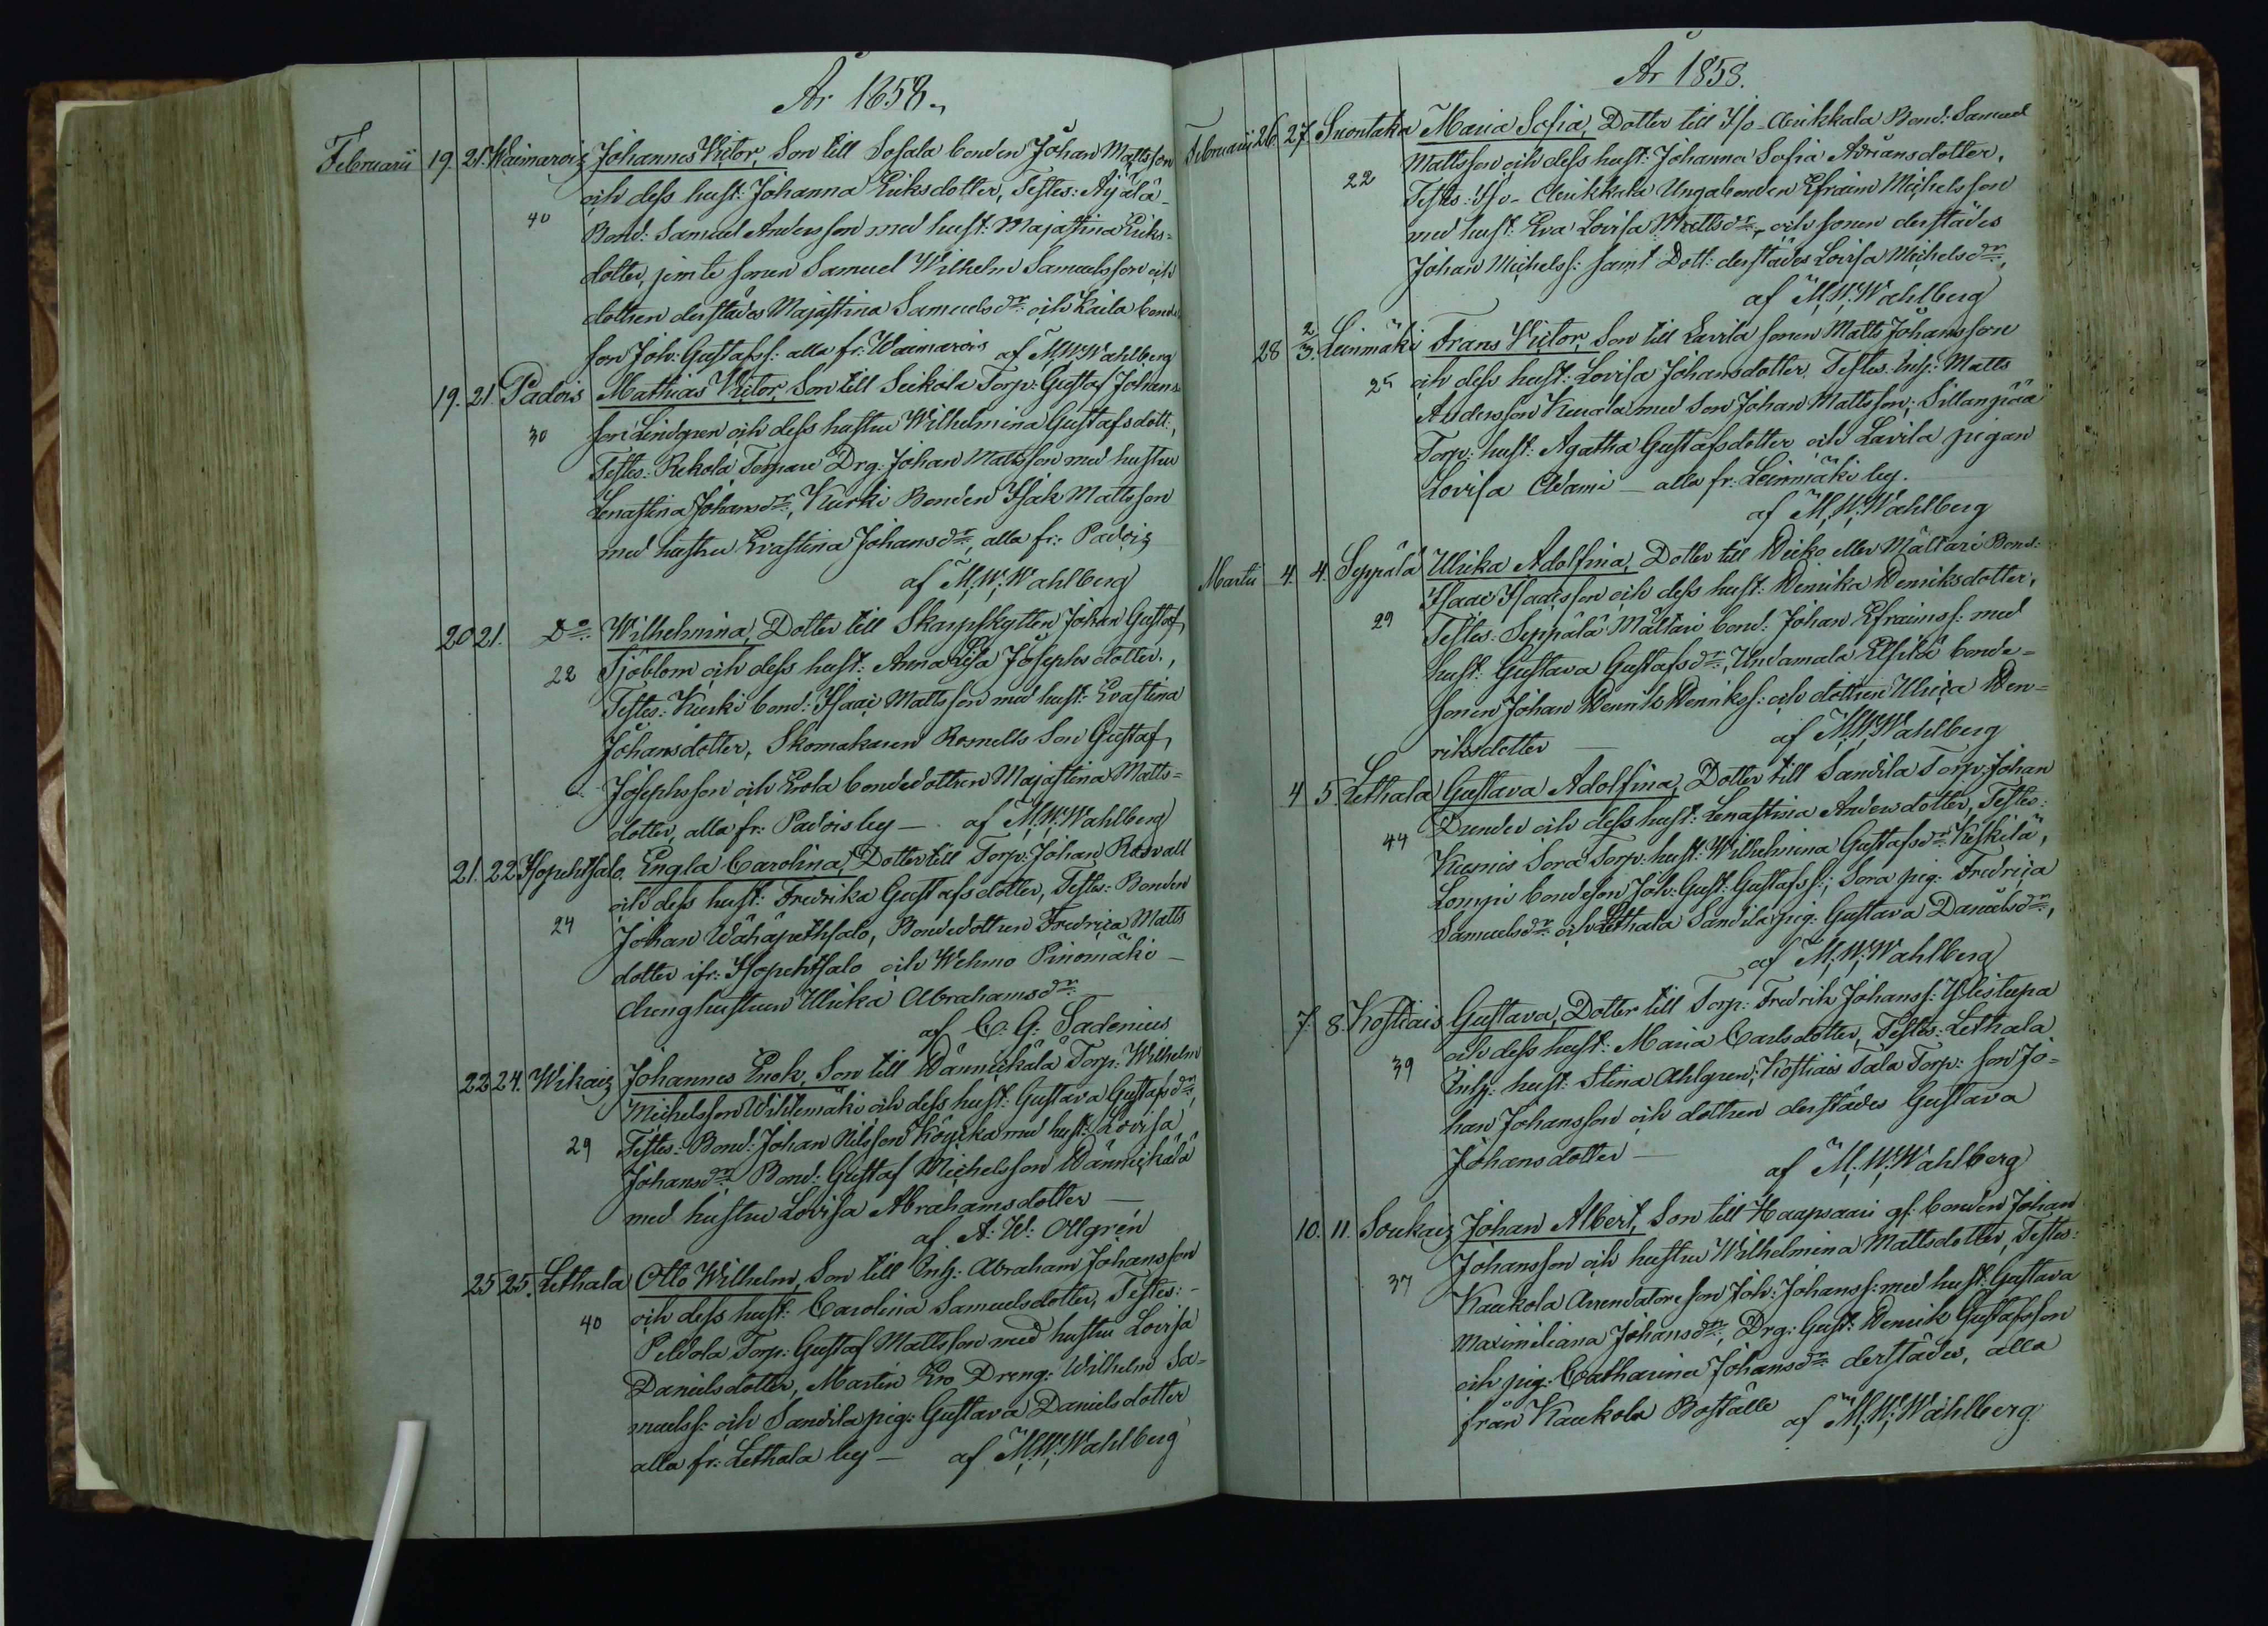 År 1858.
Februarii 19. 21. Waimarois Johannes Victor, Son till Sofala bonden Johan Mattsson
och dess hust: Johanna Eriksdotter, Testes: Äijälä
40 Bond: Samuel Andersson med hust: Majastina Eriks=
dotter, jemte sonen Samuel Wilhelm Samuelsson och
dottren derstädes Majastina Samuelsdr. och Kaila bonde
son Joh: Gustafss: alla fr: Waimarois af M, W, Wahlberg
19. 21. Padois Mathias Victor, Son till Seikola Torp: Gustaf Johans
30 son Lindgren och dess hustru Wilhelmina Gustafsdott:,
Testes: Rekola Torpare Drg: Johan Mattsson med hustru
Lenastina Johansdr., Kurki Bonden Isak Mattsson
med hustru Evastina Johansdr, alla fr: Padois
af M, W, Wahlberg
20 21. Do. Wilhelmina, Dotter till Skarpskytten Johan Gustaf
22 Sjöblom och dess hust: Anna Lisa Josephsdotter,
Testes: Kurki bond: Isaac Mattsson med hust: Evastina
Johansdotter, Skomakaren Rosnells Son Gustaf
Josephsson och Erola bondedottren Majastina Matts=
dotter, alla fr: Padois by — af M, W, Wahlberg
21. 22 Isopehtsalo. Engla Carolina, Dotter till Torp: Johan Rosvall
och dess hust: Fredrika Gustafsdotter, Testes: Bonden
24 Johan Wähäpethsalo, Bondedottren Fredrica Matts
dotter ifr: Isopehtsalo och Wehmo Pinomäki
drenghustrun Ulrika Abrahamsdr.
af C. G: Sadenius
22 24. Wikais Johannes Enok, Son till Männickälä Torp: Wilhelm
Michelsson Wihtemäki och dess hust: Gustava Gustafsdr,
29 Testes: Bond: Johan Nilsson Köyckä med hust: Lovisa
Johansdr. Bond: Gustaf Michelsson Männickälä
med hustru Lovisa Abrahamsdotter —
af A: W: Ollgrén
25 25. Lethala Otto Wilhelm, Son till Inh: Abraham Johansson
40 och dess hust: Carolina Samuelsdotter, Testes:
Peldola Torp: Gustaf Mattsson med hustru Lovisa
Danielsdotter, Martin Ero Dreng: Wilhelm Sa=
muelss: och Sandila pig: Gustava Danielsdotter
alla fr: Lethala by — af M, W, Wahlberg
År 1858.
Februarii 26. 27. Suontaka Maria Sofia, Dotter till Iso-Aerikkala Bond: Samuel
Mattsson och dess hust: Johanna Sofia Adriansdotter,
22 Testes: Iso-Aerikkala Ungabonden Efraim Michelsson
med hust: Eva Lovisa Mattsdr. och sonen derstädes
Johan Michelss: samt Dott: derstädes Lovisa Michelsdr,
af M, W, Wahlberg
28 2/3. Leinmäki Frans Victor, Son till Lavila sonen Matts Johansson
25 och dess hust: Lovisa Johansdotter. Testes. Inh: Matts
Andersson Kuuala med Son Johan Mattsson; Sillanpää
Torp: hust: Agatha Gustafsdotter och Lavila pigan
Lovisa Adami — alla fr: Leinmäki by.
af M, W, Wahlberg
Martii 4. 4. Seppälä Ulrika Adolfina, Dotter till Heiko eller Mältäri Bond:
Isaac Isacsson och dess hust: Henrika Henriksdotter,
29 Testes: Seppälä Mältäri bond: Johan Efraimss: med
hust: Gustava Gustafsdr, Undamala Elfikä bonde=
sonen Johan Henrik Henrikss: och dottren Ulrica Hen=
riksdotter — af M, W, Wahlberg
4 5. Lethala Gustava Adolfina, Dotter till Sandila Torp: Johan
Drender och dess hust: Lenastina Andersdotter, Testes:
44 Kurnis Sora Torp: hust: Wilhelmina Gustafsdr. Keskilä,
Lompi bondeson Joh: Gust: Gustafss:, Sora pig: Fredrica
Samuelsdr. och Lethala Sandila pig: Gustava Danielsdr,
af M, W, Wahlberg
7. 8. Kostiais Gustava, Dotter till Torp: Fredrik Johanss: Ylistupa
och dess hust: Maria Carlsdotter, Testes: Lethala
39 Inh: hust: Stina Ahlgren, Kostiais Tala Torp: son Jo=
han Johansson och dottren derstädes Gustava
Johansdotter — af M, W, Wahlberg
10. 11. Soukais Johan Albert, Son till Haapsaari gl. bonden Johan
Johansson och hustru Wilhelmina Mattsdotter, Testes:
37 Kaukola Arrendatore son Joh: Johanss: med hust: Gustava
Maximiliana Johansdr, Drg: Gust: Henrik Gustafsson
och pig: Catharina Johansdr. derstädes, alla
från Kaukola Boställe af M, W, Wahlberg